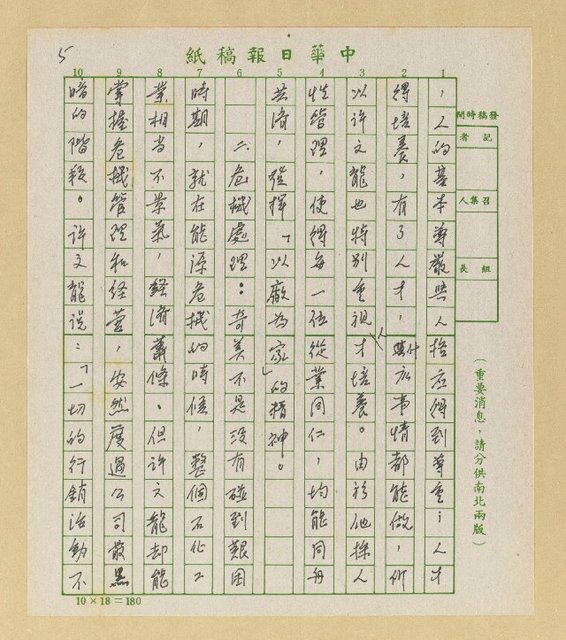 中華日報稿紙
5
10 9 8 7 6 5 4 3 2 1
發稿時間
記者
召集人
組長
（重要消息，請分供南北兩版）
，人的基本尊嚴與人格應得到尊重；人才
得培養，有了人才，什麼事情都能做，所
以許文龍也特別重視人才培養。由於他採人
性管理，使得每一位從業同仁，均能同舟
共濟，發揮「以廠為家」的精神。
二、危機處理：奇美不是沒有碰到艱困
時期，就在能源危機的時候，整個石化工
業相當不景氣，經濟蕭條。但許文龍卻能
掌握危機管理和経營，安然度過公司最黑
暗的階段。許文龍說：「一切的行銷活動不
10×18=180